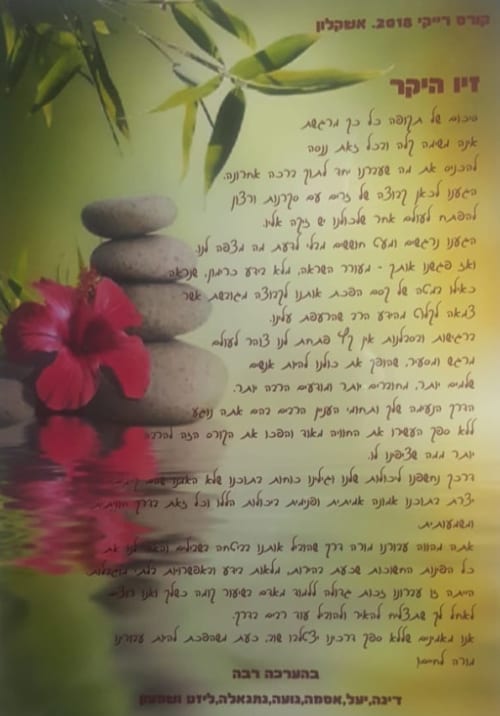 קורס רייקי 2018. אשקלון
זיו היקר
סיכום של תקופה כל כך מרגשת
אינה משימה קלה ובכל זאת ננסה
להכניס את מה שעברנו יחד לתוך ברכה אחרונה.
הגענו לכאן קבוצה של זרים עם סקרנות ורצון
להפתח לעולם אחר שלכולנו יש זיקה אליו.
הגענו נרגשים ומעט חוששים מבלי לדעת מה מצפה לנו.
ואז פגשנו אותך - מעורר השראה, מלא בידע כרמון, שנראה
כאילו במטה של קסם הפכת אותנו לקבוצה מגובשת אשר
צמאה לקלוט מהידע הרב שהרעפת עלינו.
ברגישות ובסבלנות אין קץ פתחת לנו צוהר לעולם
מרגש ומסעיר, שהופך את כולנו להיות אנשים
שלמים יותר, מחוברים יותר ומודעים הרבה יותר.
הדרך הנעימה שלך ותחומי הענין הרבים בהם אתה נוגע
ללא ספק העשירו את החוויה מאוד והפכו את הקורס הזה להרבה
יותר ממה שציפינו לו.
דרכך נחשפנו ליכולות שלנו וגילינו כוחות בתוכנו שלא האמנו
יצרת בתוכנו אמונה אמיתית ופנימית ביכולות הללו וכל זאת בדרך חוויתית
ומשמעותית.
אתה מהווה עבורנו מורה דרך שהוביל אותנו בבטחה בשבילים
כל הפינות החשוכות שכעת בהירות, מלאות בידע ובאפשרויות בלתי מוגבלות
הייתה זו עבורנו זכות גדולה ללמוד מאדם בשיעור קומה כשלך ואנו רוצים
לאחל לך שתצליח להאיר ולהוביל עוד רבים בדרך.
אנו מאמינים שללא ספק דרכנו יצטלבו שוב, כעת משהפכת להיות עבורנו
מורה לחיים!
בהערכה רבה
דינה,יעל,אסמה,נועה,נתנאלה,ליזט ושמעון